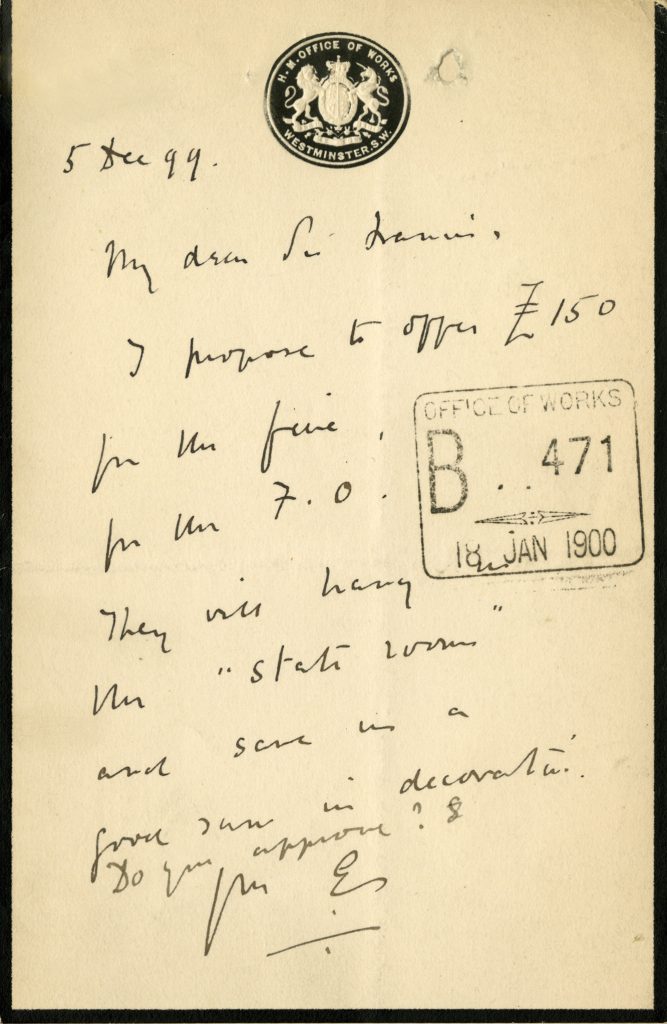 H.M. OFFICE OF WORKS
WESTMINSTER. S.W.
5 Dec 99.
My dear Sir Francis,
I propose to offer £150
for the five,
for the F.O.
OFFICE OF WORKS
B 471
18 JAN 1900
They will hang in
the "State rooms"
and save us a
good sum in decoratn.
Do you approve?
Yrs E